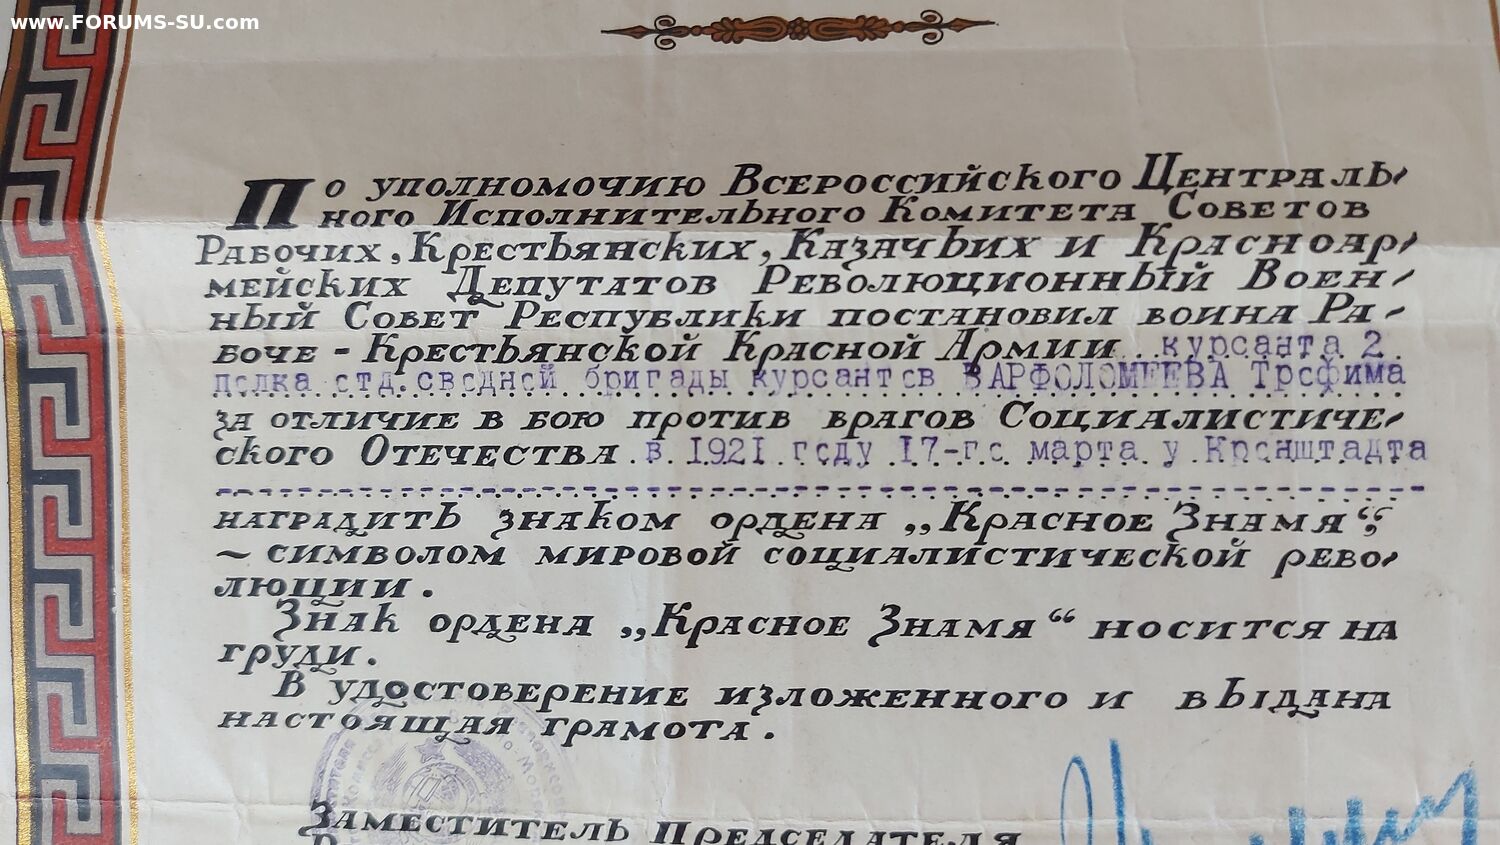 www.FORUMS-SU.com
По уполномочию Всероссийского Централь-
ного Исполнительного Комитета Советов
Рабочих, Крестьянских, Казачьих и Красноар-
мейских Депутатов Революционный Воен-
ный Совет Республики постановил воина Ра-
боче-Крестьянской Красной Армии курсанта 2
полка отд.сводной бригады курсантов ВАРФОЛОМЕЕВА Трофима
за отличие в бою против врагов Социалистиче-
ского Отечества в 1921 году 17-го марта у Кронштадта
наградить знаком ордена „Красное Знамя“,
~ символом мировой социалистической рево-
люции.
Знак ордена „Красное Знамя“ носится на
груди.
В удостоверение изложенного и выдана
настоящая грамота.
Заместитель Председателя